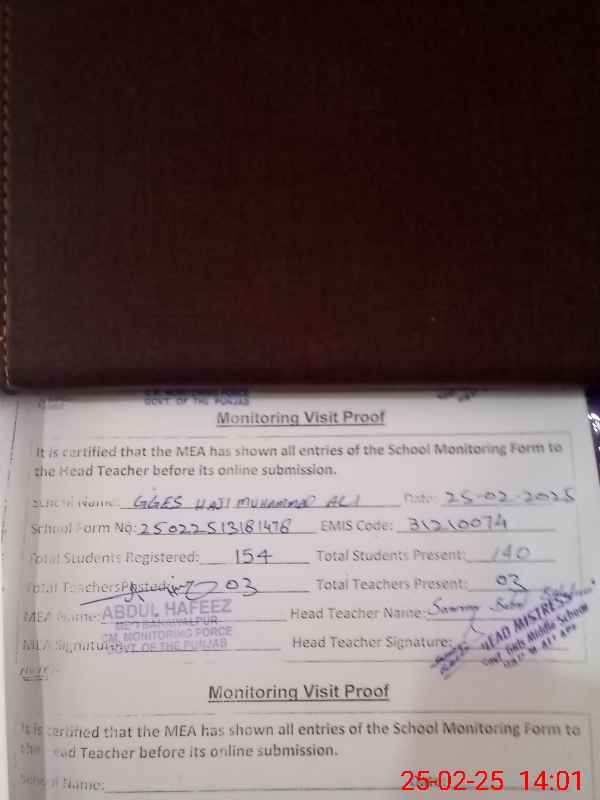 GOVT. OF THE PUNJAB
Monitoring Visit Proof
It is certified that the MEA has shown all entries of the School Monitoring Form to
the Head Teacher before its online submission.
School Name: GGES HAJI MUHAMMAD ALI Date: 25-02-2025
School Form No: 25022513181478 EMIS Code: 31210074
Total Students Registered: 154 Total Students Present: 140
Total Teachers Posted: 03 Total Teachers Present: 03
MEA Name: ABDUL HAFEEZ Head Teacher Name:
MEO BAHAWALPUR
CM. MONITORING FORCE
GOVT. OF THE PUNJAB
MEA Signature: Head Teacher Signature:
HEAD MISTRESS
Govt. Girls Middle School
Monitoring Visit Proof
It is certified that the MEA has shown all entries of the School Monitoring Form to
the Head Teacher before its online submission.
School Name:
25-02-25 14:01